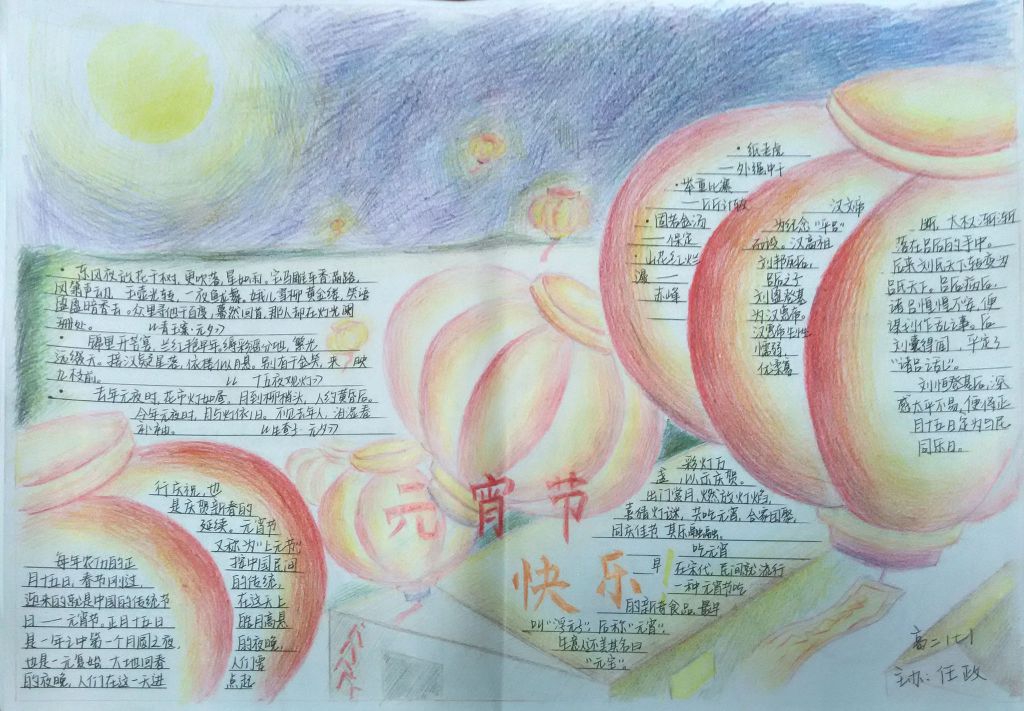 · 东风夜放花千树，更吹落，星如雨。宝马雕车香满路。
凤箫声动，玉壶光转，一夜鱼龙舞。蛾儿雪柳黄金缕，笑语
盈盈暗香去。众里寻他千百度，蓦然回首，那人却在灯火阑
珊处。 《青玉案·元夕》
九枝前。 《十五夜观灯》
· 去年元夜时，花市灯如昼，月到柳梢头，人约黄昏后。
今年元夜时，月与灯依旧。不见去年人，泪湿春
衫袖。 《生查子·元夕》
· 纸老虎
—外强中干
· 举重比赛
—斤斤计较
· 固若金汤
— 保定
· 山花红烂
漫 —
赤峰
汉文帝
为纪念“平吕”
而设。汉高祖
刘邦死后，
吕后之子
刘盈登基
为汉惠帝。
汉惠帝生性
懦弱，
优柔寡
断，大权渐渐
落在吕后的手中。
后来刘氏天下转变为
吕氏天下。吕后病后，
诸吕惶惶不安，便
谋划作乱之事。后
刘囊得闻，平定了
“诸吕之乱”。
刘恒登基后，深
感太平不易，便将正
月十五日定为与民
同乐日。
元宵节
快乐！
每年农历的正
月十五日，春节刚过，
迎来的就是中国的传统节
日——元宵节。正月十五日
是一年之中第一个月圆之夜，
也是一元复始，大地回春
的夜晚，人们在这一天进
行庆祝，也
是庆贺新春的
延续。元宵节
又称为“上元节”
按中国民间
的传统，
在这天上
皓月高悬
的夜晚，
人们需
点起
彩灯万
盏，以示庆贺。
出门赏月，燃放灯焰，
喜猜灯谜，共吃元宵，合家团聚，
同庆佳节，其乐融融。
吃元宵
早在宋代，民间就流行
一种元宵节吃
的新奇食品，最早
叫“浮元子”，后称“元宵”，
生意人还美其名曰
“元宝”。
高二(七)
主办：任政